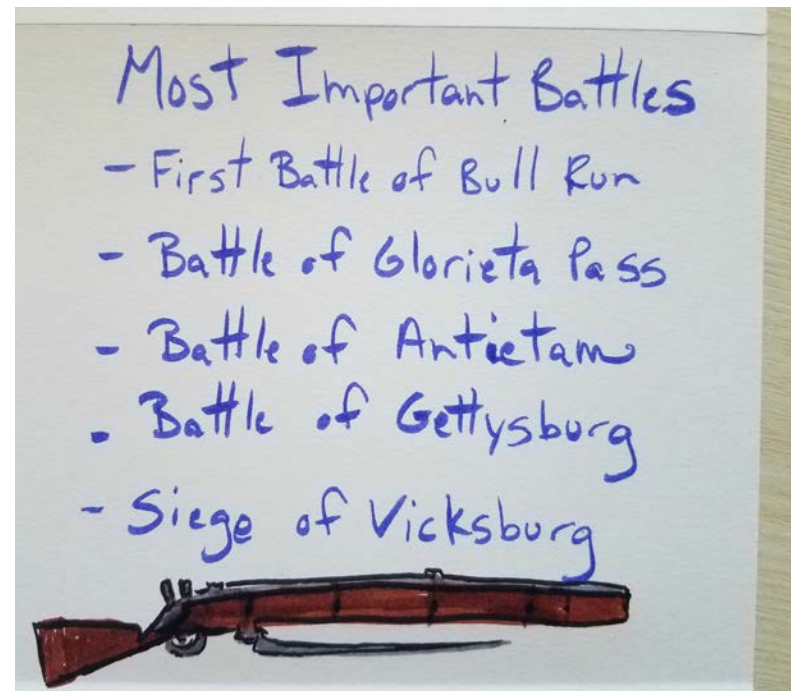 Most Important Battles
- First Battle of Bull Run
- Battle of Glorieta Pass
- Battle of Antietam
- Battle of Gettysburg
- Siege of Vicksburg